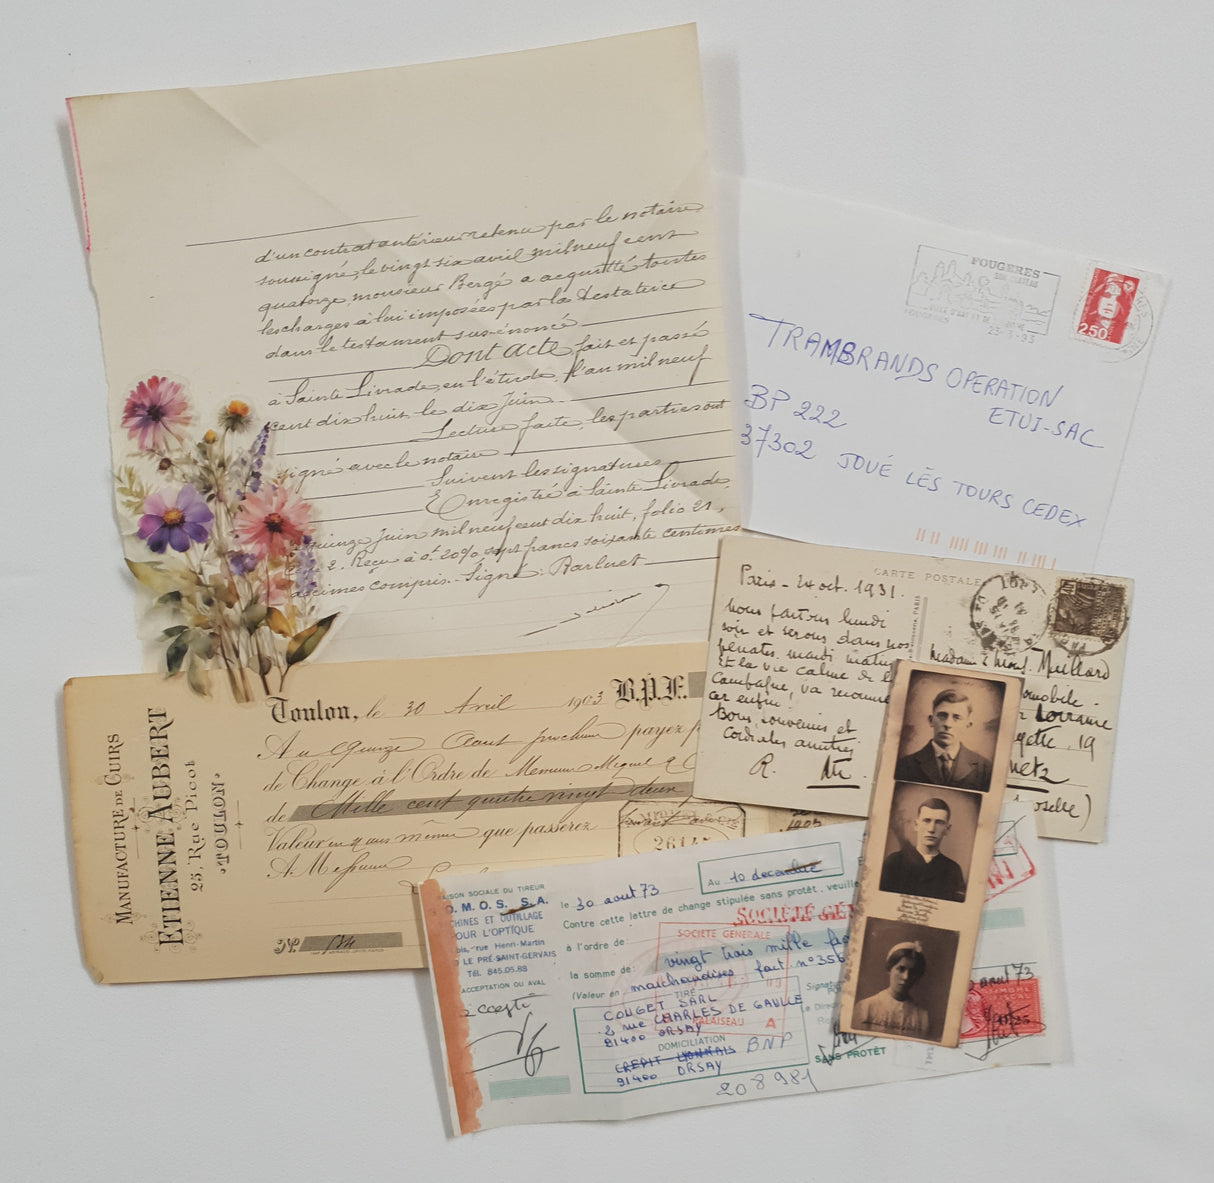 d'un contrat antérieur retenu par le notaire
soussigné, le vingt six avril mil neuf cent
quatorze, monsieur Bergé a acquitté toutes
les charges à lui imposées par la testatrice
dans le testament sus-énoncé
Dont acte, fait et passé
à Sainte Livrade, en l'étude, l'an mil neuf
cent dix huit, le dix Juin.
Lecture faite, les parties ont
signé avec le notaire
Suivent les signatures
Enregistré à Sainte Livrade
quinze Juin mil neuf cent dix huit, folio 21,
2. Reçu à 0f 20% sept francs soixante centimes
décimes compris. Signé:
FOUGERES
SON CHATEAU
VILLE D'ART ET
FOUGERES
93
2,50
TRAMBRANDS OPERATION
ETUI-SAC
BP 222
37302 JOUÉ LÈS TOURS CEDEX
CARTE POSTALE
Paris - 24 oct. 1931.
Nous partons lundi
soir et serons dans nos
pénates mardi matin
Et la vie calme de l
campagne, va recomme
cer enfin.
Bons souvenirs et
Cordiales amitiés
R.
Madame & Mons. Mullard
omobile.
Lorraine
yette, 19
etz
oselle)
MANUFACTURE DE CUIRS
ETIENNE AUBERT
25, Rue Picot
TOULON
Toulon, le 30 Avril 1903 B.P.F.
Au Quinze Aout prochain payez p
de Change à l'Ordre de Messieurs
de Mille cent quatre vingt deux
Valeur en que passerez
A Messieurs
No
26145
1903
AISON SOCIALE DU TIREUR
O.M.O.S. S.A.
CHINES ET OUTILLAGE
OUR L'OPTIQUE
bis, rue Henri-Martin
LE PRÉ-SAINT-GERVAIS
Tél. 845.05.88
ACCEPTATION OU AVAL
accepté
le 30 aout 73
Au 10 decembre
Contre cette lettre de change stipulée sans protêt, veuille
SOCIÉTÉ GÉN
à l'ordre de :
SOCIETE GENERALE
la somme de : vingt trois mille
(Valeur en : marchandises. fact. n° 356
TIRÉ
COUGET SARL
2 rue CHARLES DE GAULLE
91400 ORSAY
PALAISEAU A
DOMICILIATION
CREDIT LYONNAIS BNP
91400 ORSAY
208981
Signat
Le Direc
SANS PROTÊT
aout 73
FISCAL